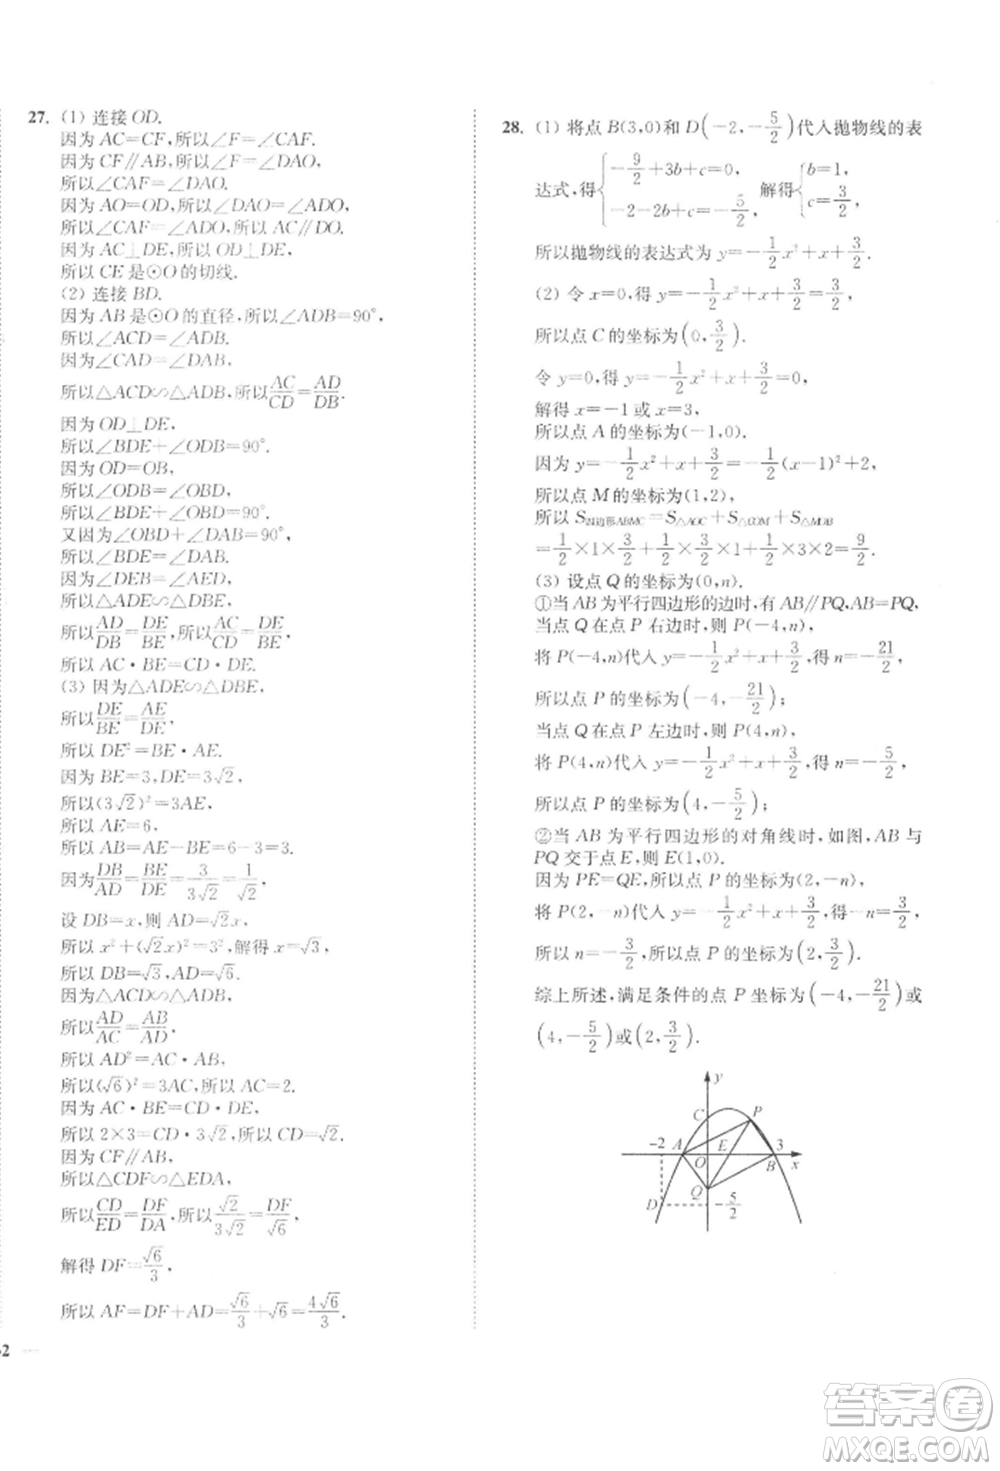 27. (1) 连接 OD.
因为 AC=CF,所以∠F=∠CAF.
因为 CF∥AB,所以∠F=∠DAO.
所以∠CAF=∠DAO.
因为 AO=OD,所以∠DAO=∠ADO.
所以∠CAF=∠ADO.所以 AC∥DO.
因为 AC⊥DE,所以 OD⊥DE.
所以 CE 是⊙O 的切线.
(2) 连接 BD.
因为 AB 是⊙O 的直径,所以∠ADB=90°.
所以∠ACD=∠ADB.
因为∠CAD=∠DAB,
所以△ACD∽△ADB.所以AC/CD=AD/DB.
因为 OD⊥DE,
所以∠BDE+∠ODB=90°.
因为 OD=OB,
所以∠ODB=∠OBD.
所以∠BDE+∠OBD=90°.
又因为∠OBD+∠DAB=90°,
所以∠BDE=∠DAB.
因为∠DEB=∠AED,
所以△ADE∽△DBE.
所以AD/DB=DE/BE.所以AC/CD=DE/BE.
所以 AC·BE=CD·DE.
(3) 因为△ADE∽△DBE,
所以DE/BE=AE/DE.
所以 DE²=BE·AE.
因为 BE=3,DE=3√2,
所以(3√2)²=3AE,
所以 AE=6,
所以 AB=AE−BE=6−3=3.
因为DB/AD=BE/DE=3/3√2=1/√2.
设 DB=x,则 AD=√2x,
所以 x²+(√2x)²=3²,解得 x=√3,
所以 DB=√3,AD=√6.
因为△ACD∽△ADB,
所以AD/AC=AB/AD.
所以 AD²=AC·AB,
所以(√6)²=3AC,所以 AC=2.
因为 AC·BE=CD·DE,
所以 2×3=CD·3√2,所以 CD=√2.
因为 CF∥AB,
所以△CDF∽△EDA.
所以CD/ED=DF/DA.所以√2/3√2=DF/√6.
解得 DF=√6/3,
所以 AF=DF+AD=√6/3+√6=4√6/3.
28. (1) 将点 B(3,0)和 D(−2,−5/2)代入抛物线的表
达式,得{−9/2+3b+c=0, −2−2b+c=−5/2, 解得{b=1, c=3/2,
所以抛物线的表达式为 y=−1/2x²+x+3/2.
(2) 令 x=0,得 y=−1/2x²+x+3/2=3/2,
所以点 C 的坐标为(0,3/2).
令 y=0,得−1/2x²+x+3/2=0,
解得 x=−1或 x=3,
所以点 A 的坐标为(−1,0).
因为 y=−1/2x²+x+3/2=−1/2(x−1)²+2,
所以点 M 的坐标为(1,2),
所以 S四边形ABMC=S△AOC+S△COM+S△MOB
=1/2×1×3/2+1/2×3/2×1+1/2×3×2=9/2.
(3) 设点 Q 的坐标为(0,n).
①当 AB 为平行四边形的边时,有 AB∥PQ、AB=PQ.
当点 Q 在点 P 右边时,则 P(−4,n),
将 P(−4,n)代入 y=−1/2x²+x+3/2,得 n=−21/2,
所以点 P 的坐标为(−4,−21/2);
当点 Q 在点 P 左边时,则 P(4,n),
将 P(4,n)代入 y=−1/2x²+x+3/2,得 n=−5/2,
所以点 P 的坐标为(4,−5/2);
②当 AB 为平行四边形的对角线时,如图,AB 与
PQ 交于点 E,则 E(1,0).
因为 PE=QE,所以点 P 的坐标为(2,−n),
将 P(2,−n)代入 y=−1/2x²+x+3/2,得−n=3/2,
所以 n=−3/2,所以点 P 的坐标为(2,3/2).
综上所述,满足条件的点 P 坐标为(−4,−21/2)或
(4,−5/2)或(2,3/2).
y
C
P
−2
A
O
E
3
B
x
Q
D
−5/2
答案卷
MXQE.COM